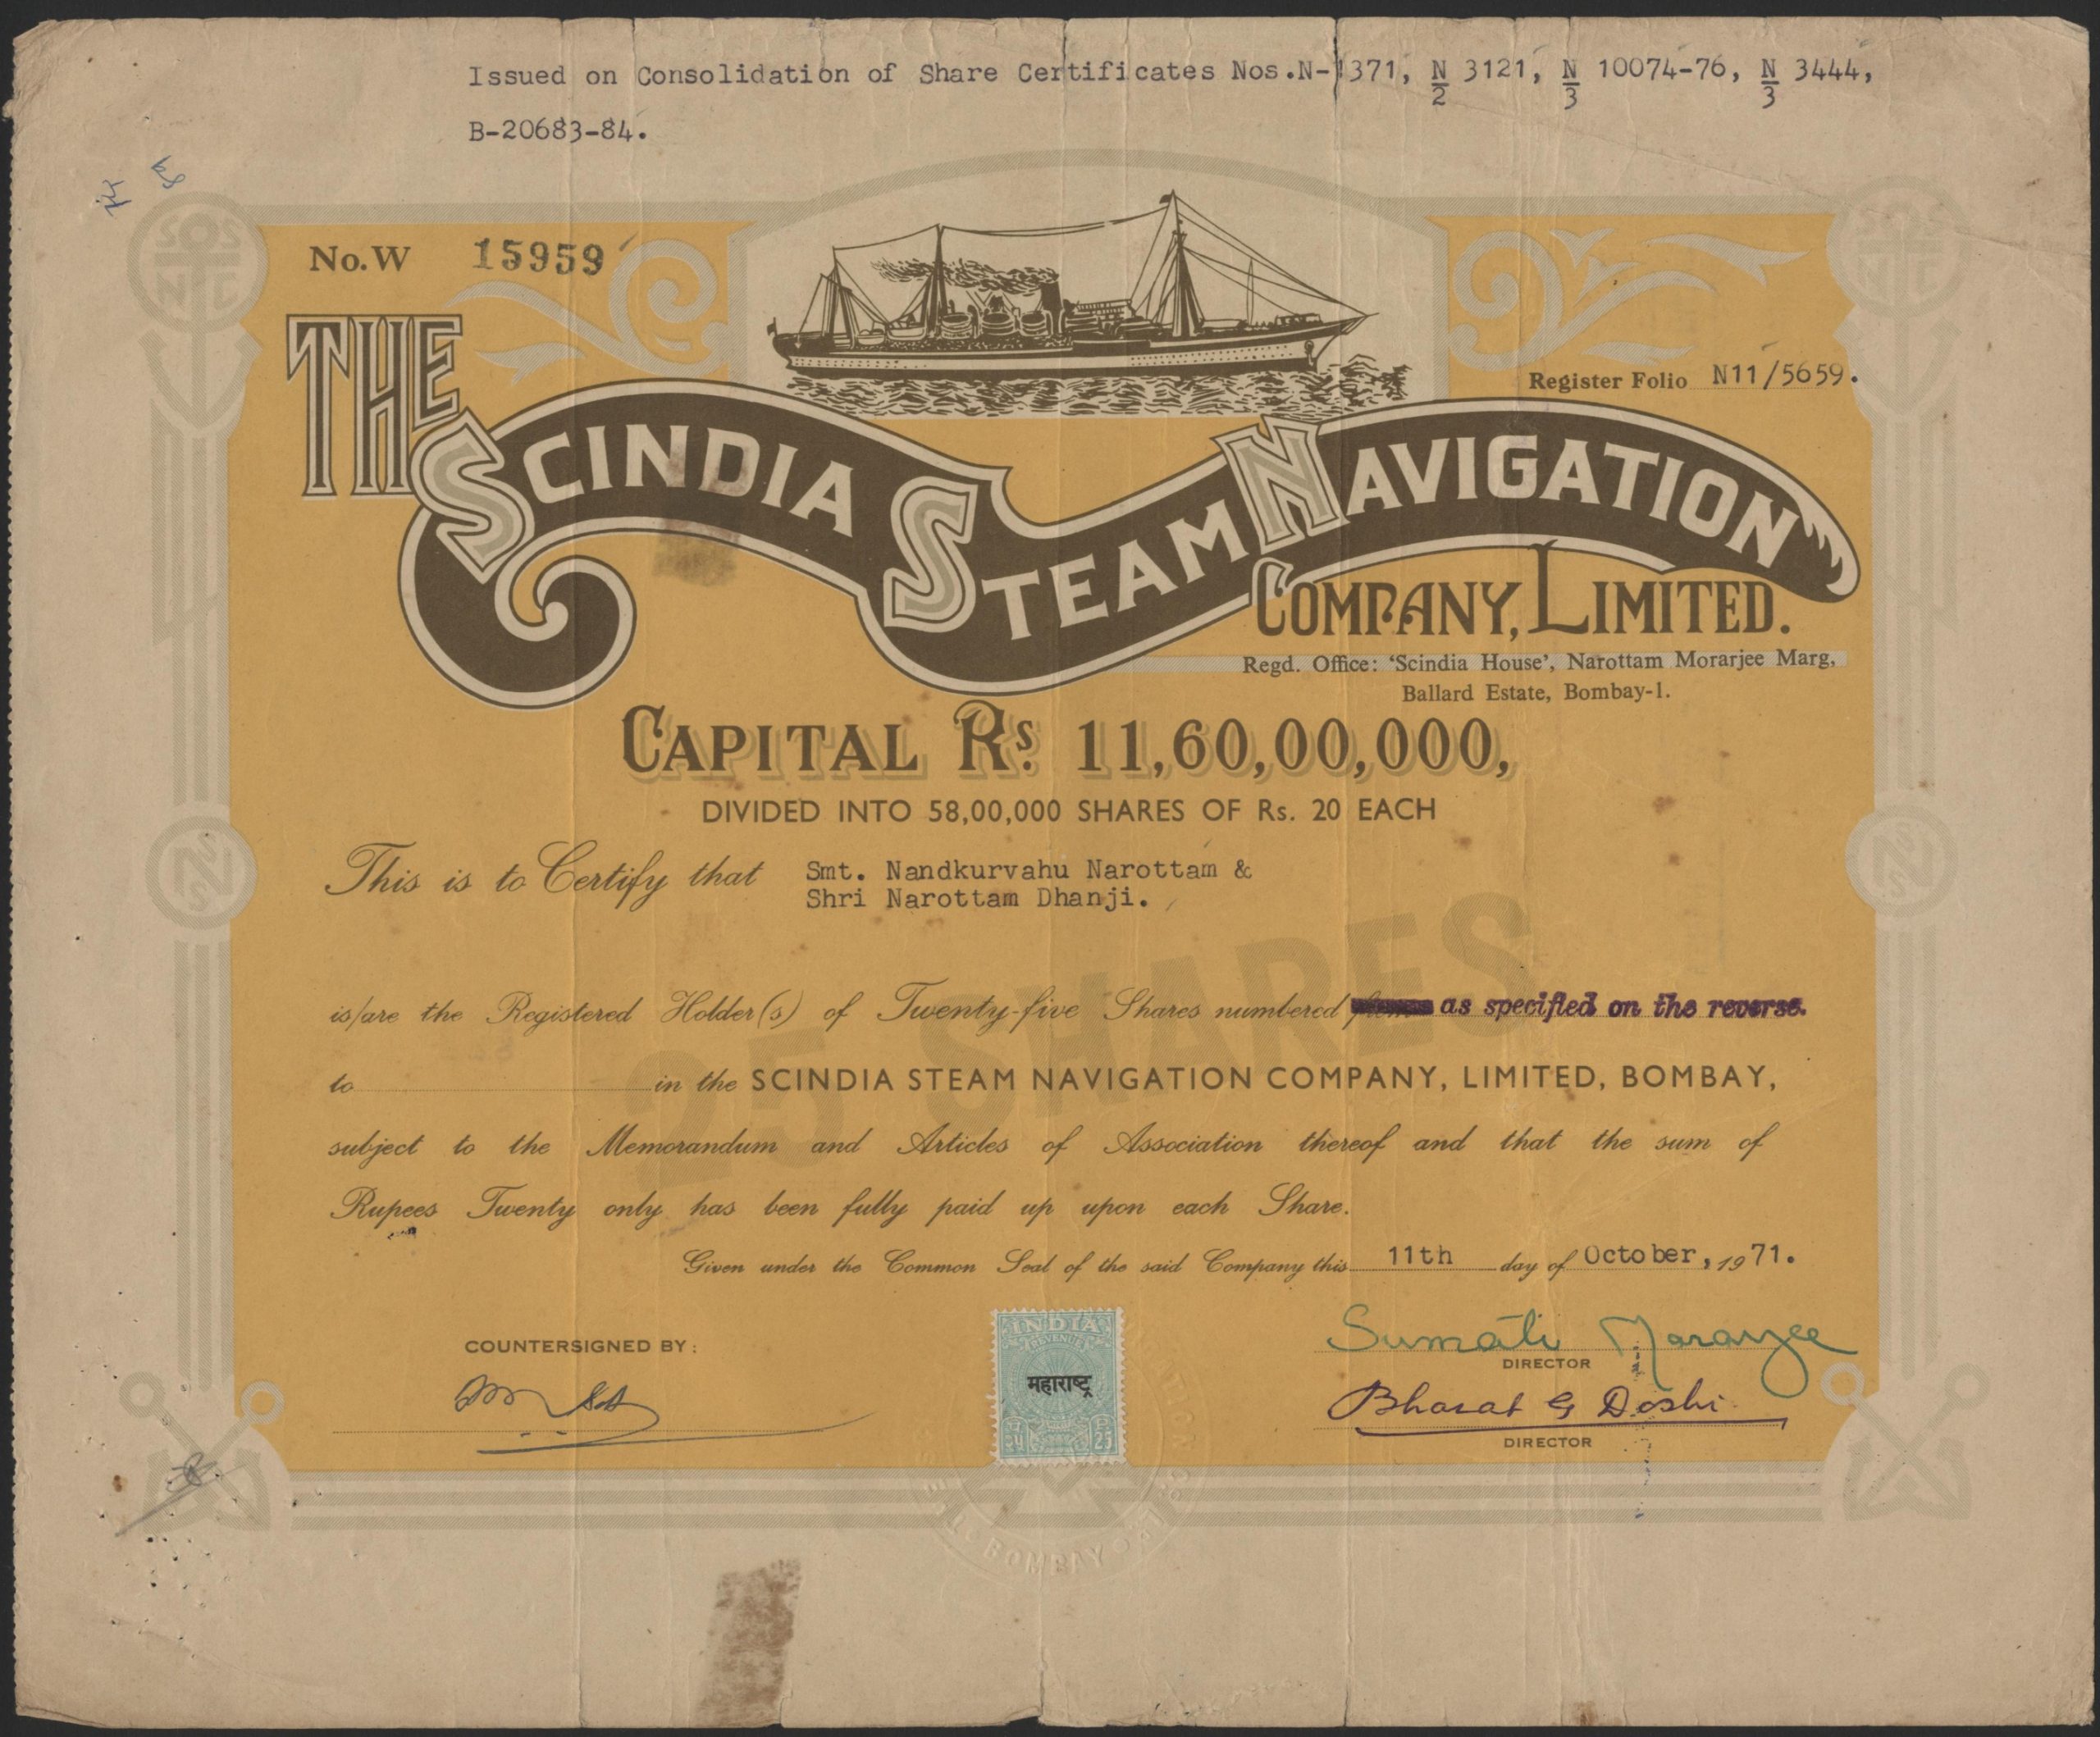 Issued on Consolidation of Share Certificates Nos.N-1371, N/2 3121, N/3 10074-76, N/3 3444,
B-20683-84.
No. W 15959
Register Folio N11/5659.
THE
SCINDIA STEAM NAVIGATION
COMPANY, LIMITED.
Regd. Office: ‘Scindia House’, Narottam Morarjee Marg,
Ballard Estate, Bombay-1.
CAPITAL Rs. 11,60,00,000,
DIVIDED INTO 58,00,000 SHARES OF Rs. 20 EACH
This is to Certify that Smt. Nandkurvahu Narottam &
Shri Narottam Dhanji.
25 SHARES
is/are the Registered Holder(s) of Twenty-five Shares numbered as specified on the reverse.
to in the SCINDIA STEAM NAVIGATION COMPANY, LIMITED, BOMBAY,
subject to the Memorandum and Articles of Association thereof and that the sum of
Rupees Twenty only has been fully paid up upon each Share.
Given under the Common Seal of the said Company this 11th day of October, 1971.
COUNTERSIGNED BY:
INDIA
REVENUE
महाराष्ट्र
25
Sumati Morarjee
DIRECTOR
Bharat G Doshi
DIRECTOR
BOMBAY